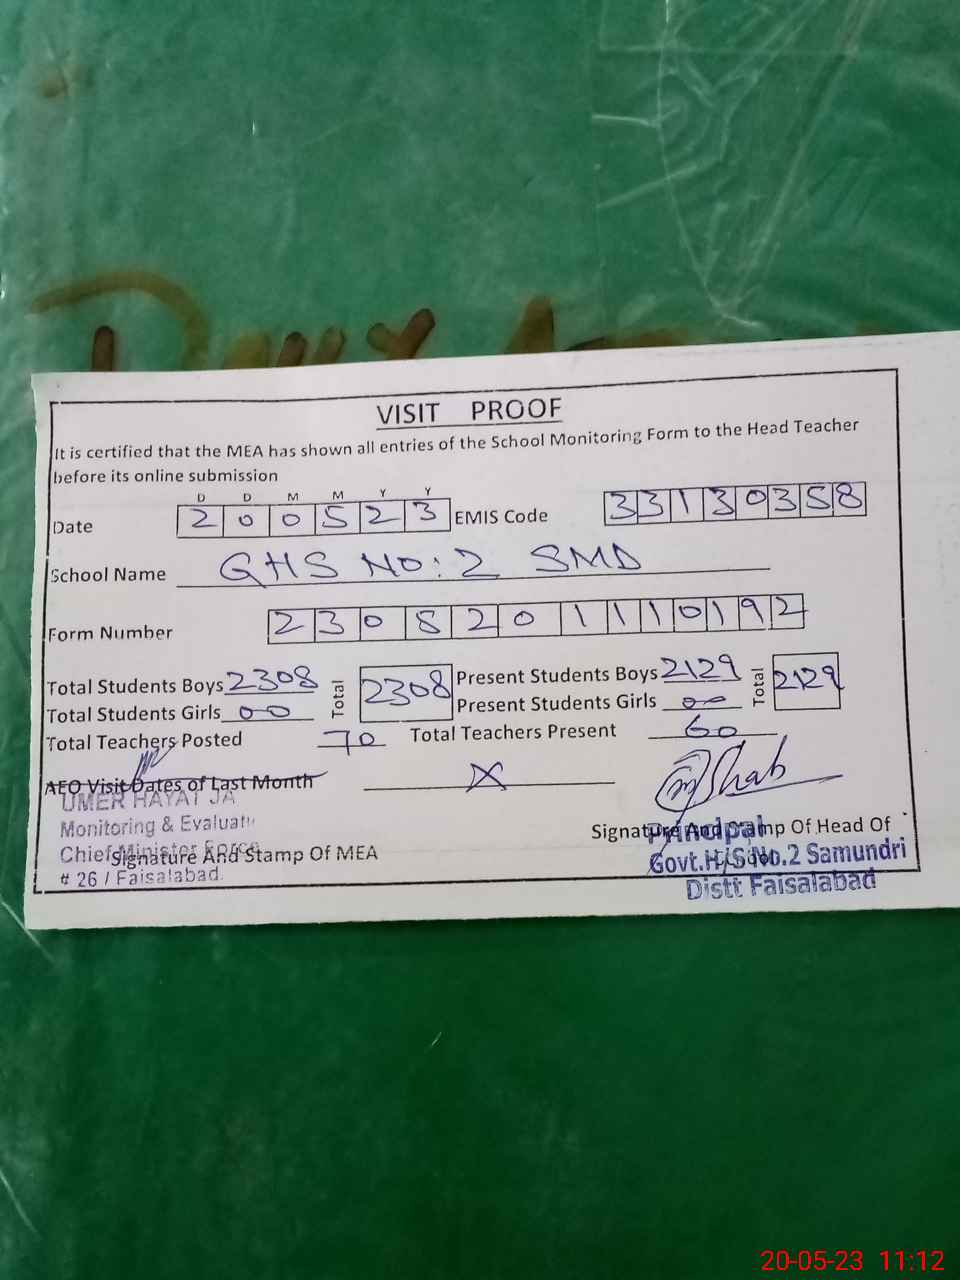 VISIT PROOF
It is certified that the MEA has shown all entries of the School Monitoring Form to the Head Teacher
before its online submission
D D M M Y Y
Date 2 0 0 5 2 3 EMIS Code 3 3 1 3 0 3 5 8
School Name GHS NO: 2 SMD
Form Number 2 3 0 8 2 0 1 1 1 0 1 9 2
Total Students Boys 2308 Total 2308 Present Students Boys 2129 Total 2129
Total Students Girls 00 Present Students Girls 00
Total Teachers Posted 70 Total Teachers Present 60
AEO Visit Dates of Last Month X
UMER HAYAT JA
Monitoring & Evaluati
Chief Minister Force
# 26 / Faisalabad.
Signature And Stamp Of MEA
Signature And Stamp Of Head Of
Principal
Govt.H/S No.2 Samundri
Distt Faisalabad
20-05-23 11:12